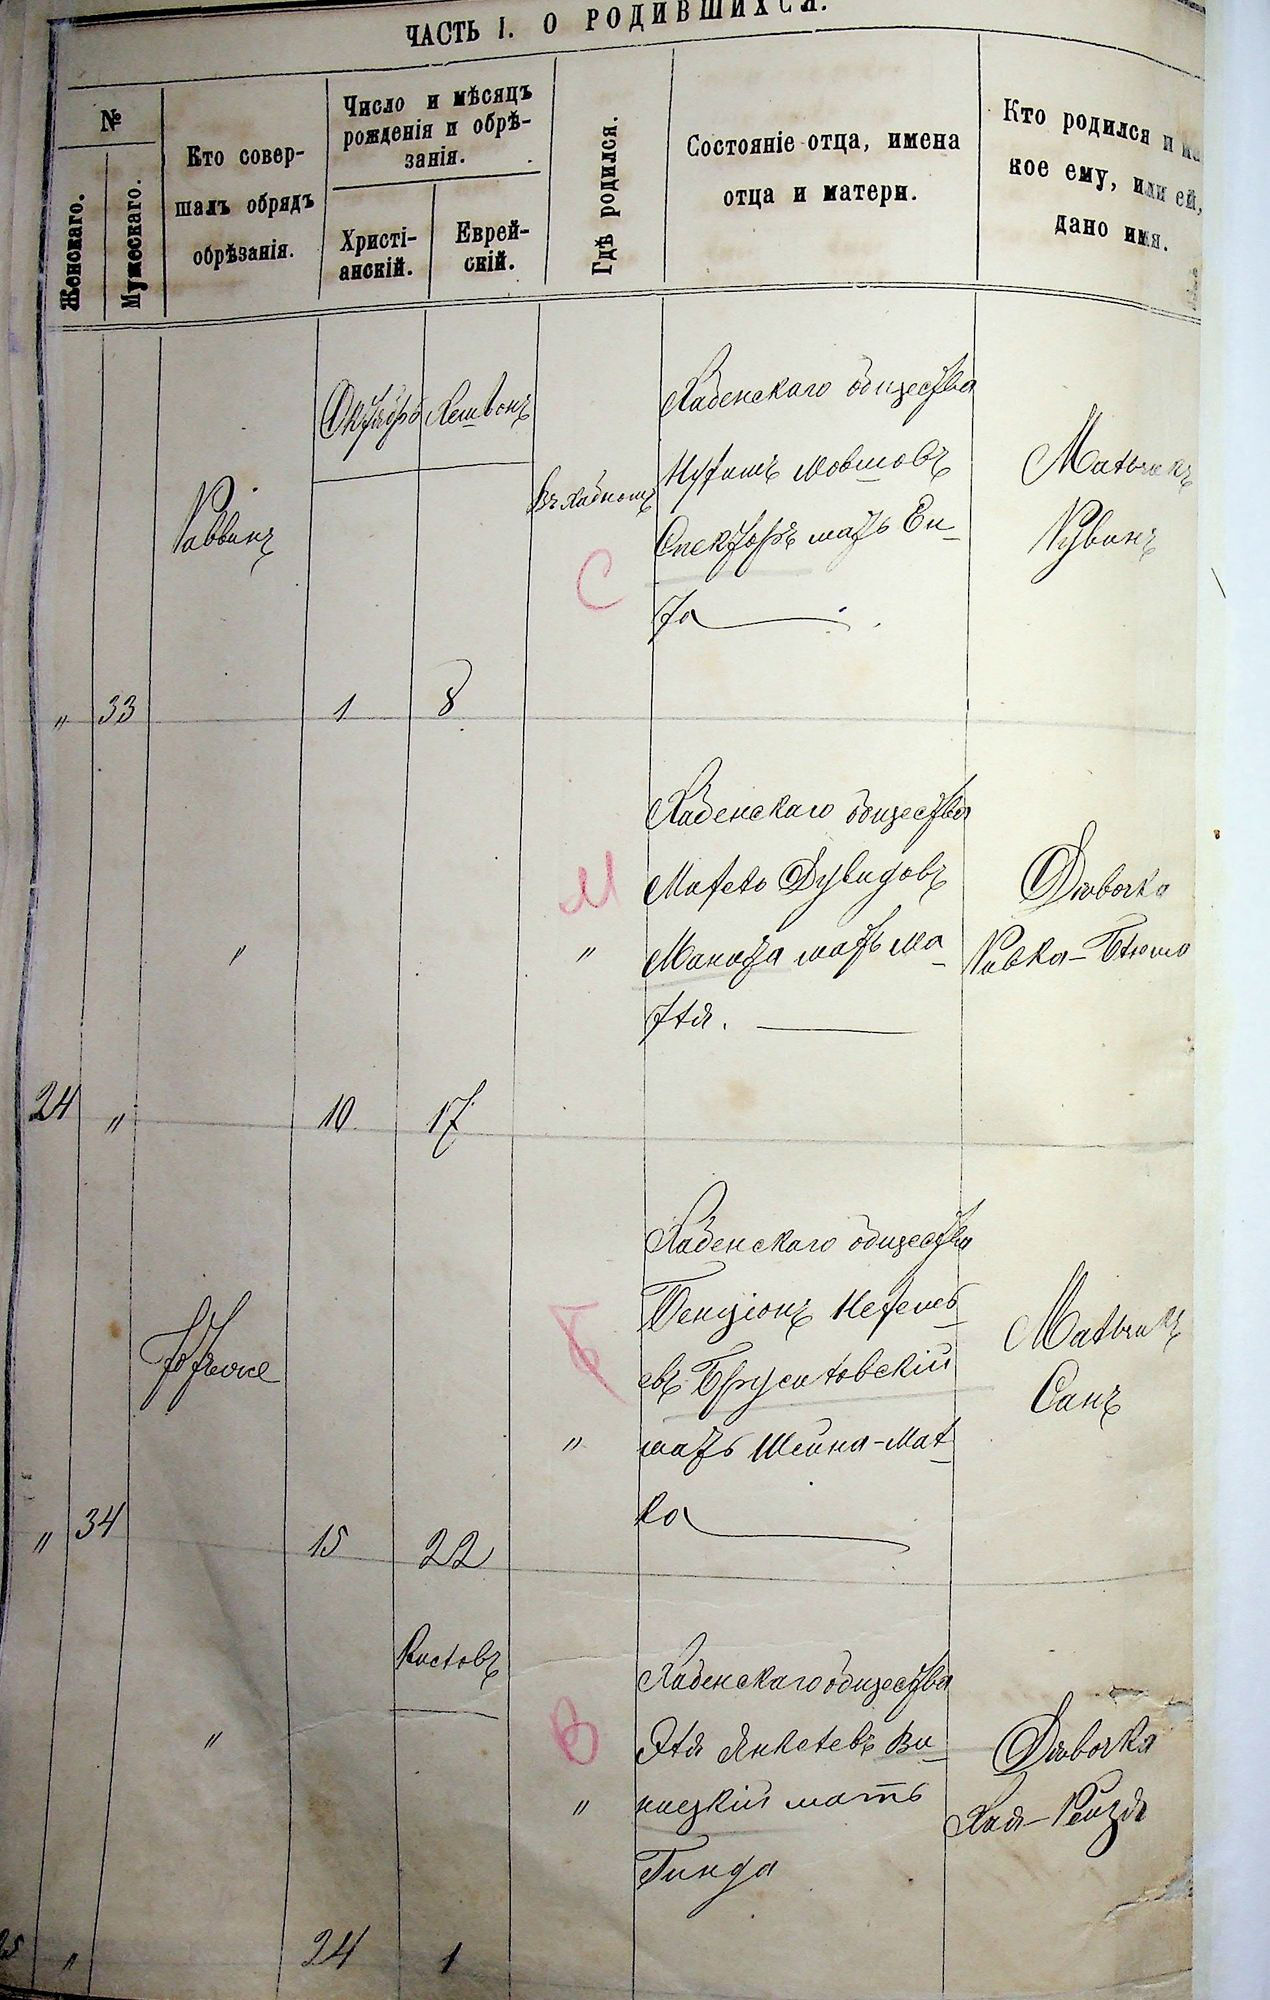 ЧАСТЬ I. О РОДИВШИХСЯ.
№
Женскаго.
Мужескаго.
Кто совер-
шалъ обрядъ
обрѣзанія.
Число и мѣсяцъ
рожденія и обрѣ-
занія.
Христі-
анскій.
Еврей-
скій.
Гдѣ родился.
Состояніе отца, имена
отца и матери.
Кто родился и ка
кое ему, или ей,
дано имя.
„ 33
Раввинъ
Октября
1
Хешвонъ
8
С
Хабенскаго общества
Мовшовъ
Спекторъ мать Ен-
та
Мальчикъ
Рувинъ
24 „
„
10
17
М
„
Хабенскаго общества
Дувидовъ
мать Ма-
Дѣвочка
Ривка-
„ 34
15
22
Б
„
Хабенскаго общества
Бенціонъ
евъ Брусиловскій
мать Шейна-Мал-
ка
Мальчикъ
25 „
„
24
Кислевъ
1
В
„
Хабенскаго общества
Эля Янкелевъ Ви-
ницкій мать
Гинда
Дѣвочка
Хая-Рейзя